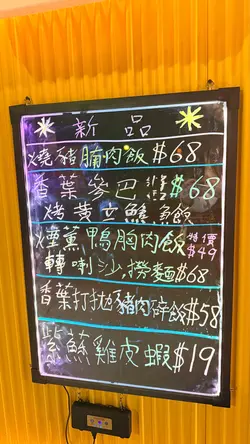 新品
燒豬腩肉飯$68
香葉參巴 $68
烤黃立鱠飯
煙薰鴨胸肉飯 特價 $49
轉喇沙撈麵$68
香葉打拋豬肉碎飯$58
紫絲雞皮蝦$19